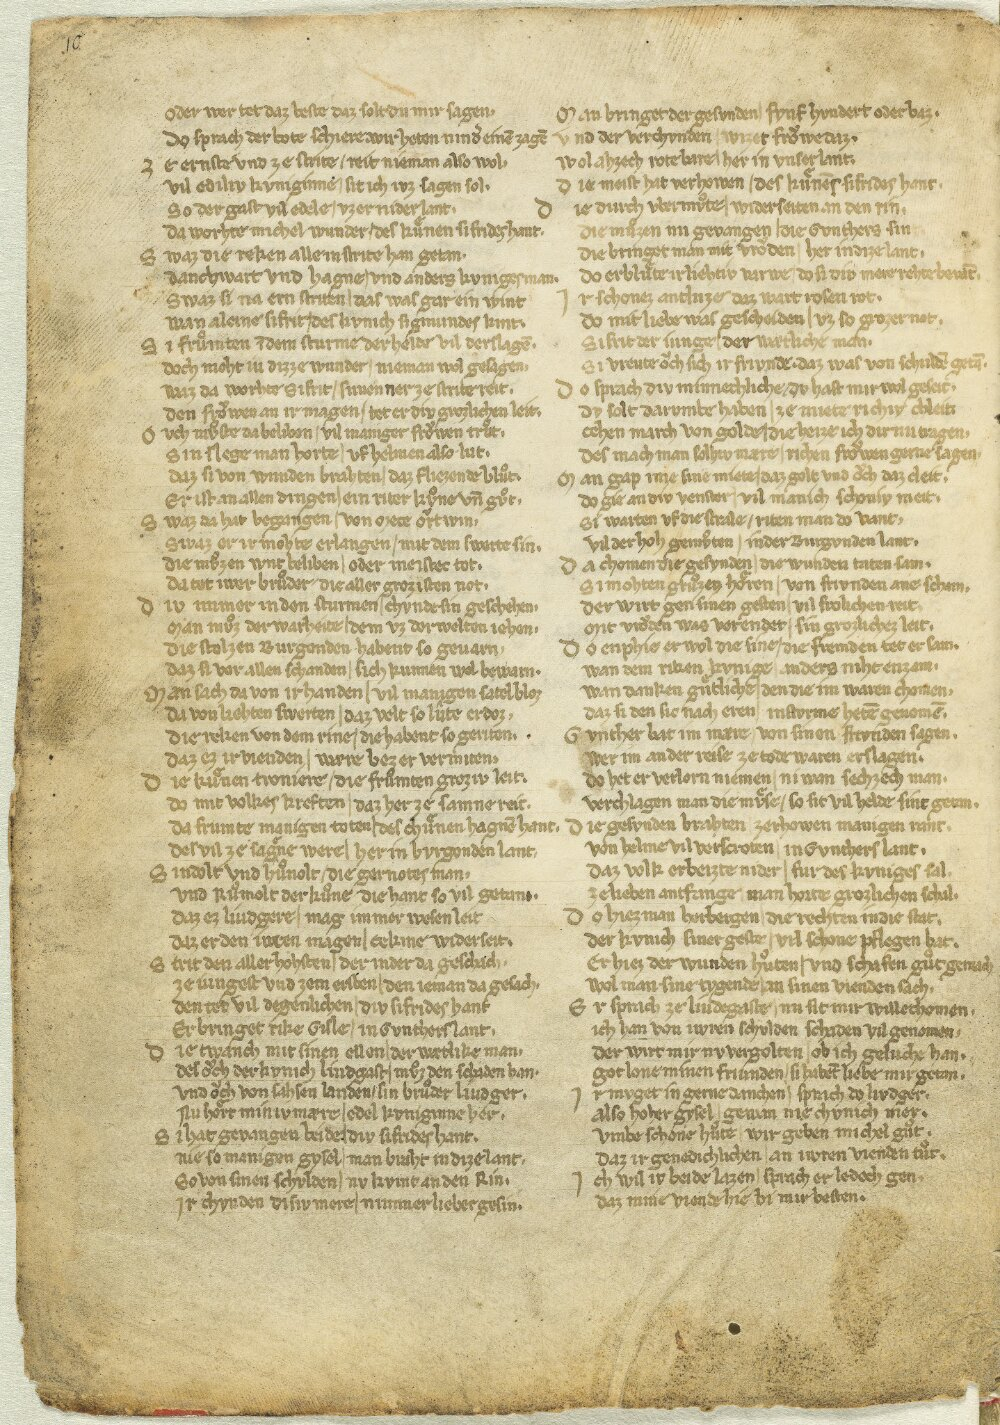 10
oder wer tet daz beste daz solt du mir sagen.
Do sprach der bote schiere wir heten nind͛ einē zagē
Z e ernste vnd ze strite / reit nieman also wol.
vil ediliv kyniginne / sit ich ivz sagen sol.
So der gast vil edele / vz er niderlant.
da worhte michel wunder / des kuͤnen sifrides hant.
S waz die reken alle in strite han getan.
danchwart vnd hagne / vnd anders kyniges man.
Swaz si na ern striten / daz was gar ein wint
wan aleine sifrit / des kynich sigmundes kint.
S i fruͦmten in dem sturme der helde vil derslagē.
doch moht iu dizze wunder / nieman wol gesagen.
waz da worhte Sifrit / swenner ze strite reit.
den froͮwen an ir magen / tet er div grozlichen leit.
O vch mvͦste da beliben / vil maniger froͮwen truͦt.
Sin slege man horte / vf helmen also lut.
daz si von wunden brahten / daz fliezende bluͦt.
Er ist an allen dingen / ein riter kuͦne vn̄ guͦt.
S waz da hat begangen / von Mece ortwin.
Swaz er ir mohte erlangen / mit dem swerte sin.
die mvͦzen wnt beliben / oder meistec tot.
da tet iwer bruͦder die aller grozisten not.
D iv immer in den sturmen / chynde sin geschehen.
Man mvͦz der warheite / dem vz derwelten iehen.
die stolzen Burgonden habent so gevarn.
daz si vor allen schanden / sich kunnen wol bewarn.
M an sach da von ir handen / vil manigen satel bloz
da von liehten swerten / daz velt so lute erdoz.
die reken von dem rine / die habent so geriten.
daz ez ir vienden / were bezer vermiten.
D ie kuͤnen troniere / die frumten groziv leit.
do mit volkes kreften / daz her ze samne reit.
da frumte manigen toten / des chuͤnen hagnē hant.
des vil ze sagne were / her in byrgonden lant.
S indolt vnd huͦnolt / die gernotes man.
vnd Rumolt der kuͦne die hant so vil getan.
daz ez liudgere / mag immer wesen leit
daz er den iwren magen / ackine widerseit.
S trit den aller hohsten / der inder da geschach.
ze iungest vnd zem ersten / den ieman da gesach.
den tet vil degenlichen / div sifrides hant
Er bringet rike Gisle / in Gvnthers lant.
D ie twanch mit sinen ellen / der wetlike man.
des oͮch der kynich liudgast / mvͦz den schaden han.
vnd oͮch von sahsen landen / sin bruͦder liudger.
Nu hort min iv mære / edel kyniginne her.
S i hat gevangen beide / div sifrides hant.
nie so manigen gysel / man braht in dize lant.
So von sinen schvlden / nv kvmt an den Rin.
Ir chynden disiv mere / nimmer lieber gesin.
M an bringet der gesvnden / fvnf hvndert oder baz.
v nd der verchvnden / wizet froͮwe daz.
wol ahzech rote bare / her in vnser lant.
D ie meist hat verhowen / des kuͤnen sifrides hant.
D ie durch vbermvͦte / widerseiten an den rin.
die mvͦzen nu gevangen / die Gvnthers sin
die bringet man mit vroͮden / her in dize lant.
do erbluͤte ir liehtiv varwe / do si div mere rehte bevāt.
I r schonez antluze daz wart rosen rot.
do mit liebe was gescheiden / vz so grozer not.
Sifrit der iunge / der wætliche man.
Si vreute oͮch sich ir frivnde. daz was von schuldē getā.
D o sprach div minnechliche / dv hast mir wol geseit.
dv solt darumbe haben / ze miete richiv chleit
cehen march von golde / die heize ich dir nu tragen.
des mach man solhiv mære / richen froͮwen gerne sagen.
M an gap ime sine miete / daz golt vnd oͮch daz cleit.
do gie an div venster / vil manich schoniv meit.
Si warten vf die straze / riten man do vant.
vil der hoh gemvͦten / in der Burgvnden lant.
D a chomen die gesvnden / die wunden taten sam.
Si mohten gruͦzen hoͤren / von frivnden ane scham.
Der wirt gen sinen gesten / vil frolichen reit.
Mit vroͮden was verendet / sin grozlichez leit.
D o enphie er wol die sine / die fremden tet er sam.
wan dem riken kynige / anders niht enzam.
wan danken guͤtliche / den die im waren chomen.
daz si den sic nach eren / in sturme hetē genomē.
G vnther bat im mære / von sinen frivnden sagen.
Wer im an der reise / ze tode waren erslagen.
do het er verlorn niemen / niwan sechzech man.
verchlagen man die mvͤse / so sit vil helde sint getan.
D ie gesvnden brahten / zerhowen manigen rant.
von helme vil verscroten / in Gvnthers lant.
daz volk erbeizte nider / fur des kyniges sal.
ze lieben antfange / man horte grozlichen schal.
D o hiez man herbergen / die rechten in die stat.
der kynich siner geste / vil schone pflegen bat.
Er hiez der wunden huͦten / vnd schafen guͦt gemach
wol man sine tvgende / an sinen vienden sach.
E r sprach ze liudegaste / nu sit mir willechomen.
ich han von iwren schvlden schaden vil genomen.
der wirt mir nv vergolten / ob ich geluche han.
got lone minen friunden / si habēt liebe mir getan.
I r mvget in gerne danchen / sprach do livdger.
also hoher gysel / gewan nie chynich mer.
vmbe schone huͦte / wir geben michel guͦt.
daz ir genedichlichen / an iwren vienden tuͦt.
I ch wil iv beide lazen / sprach er ledech gen.
daz mine viende hie bi mir besten.